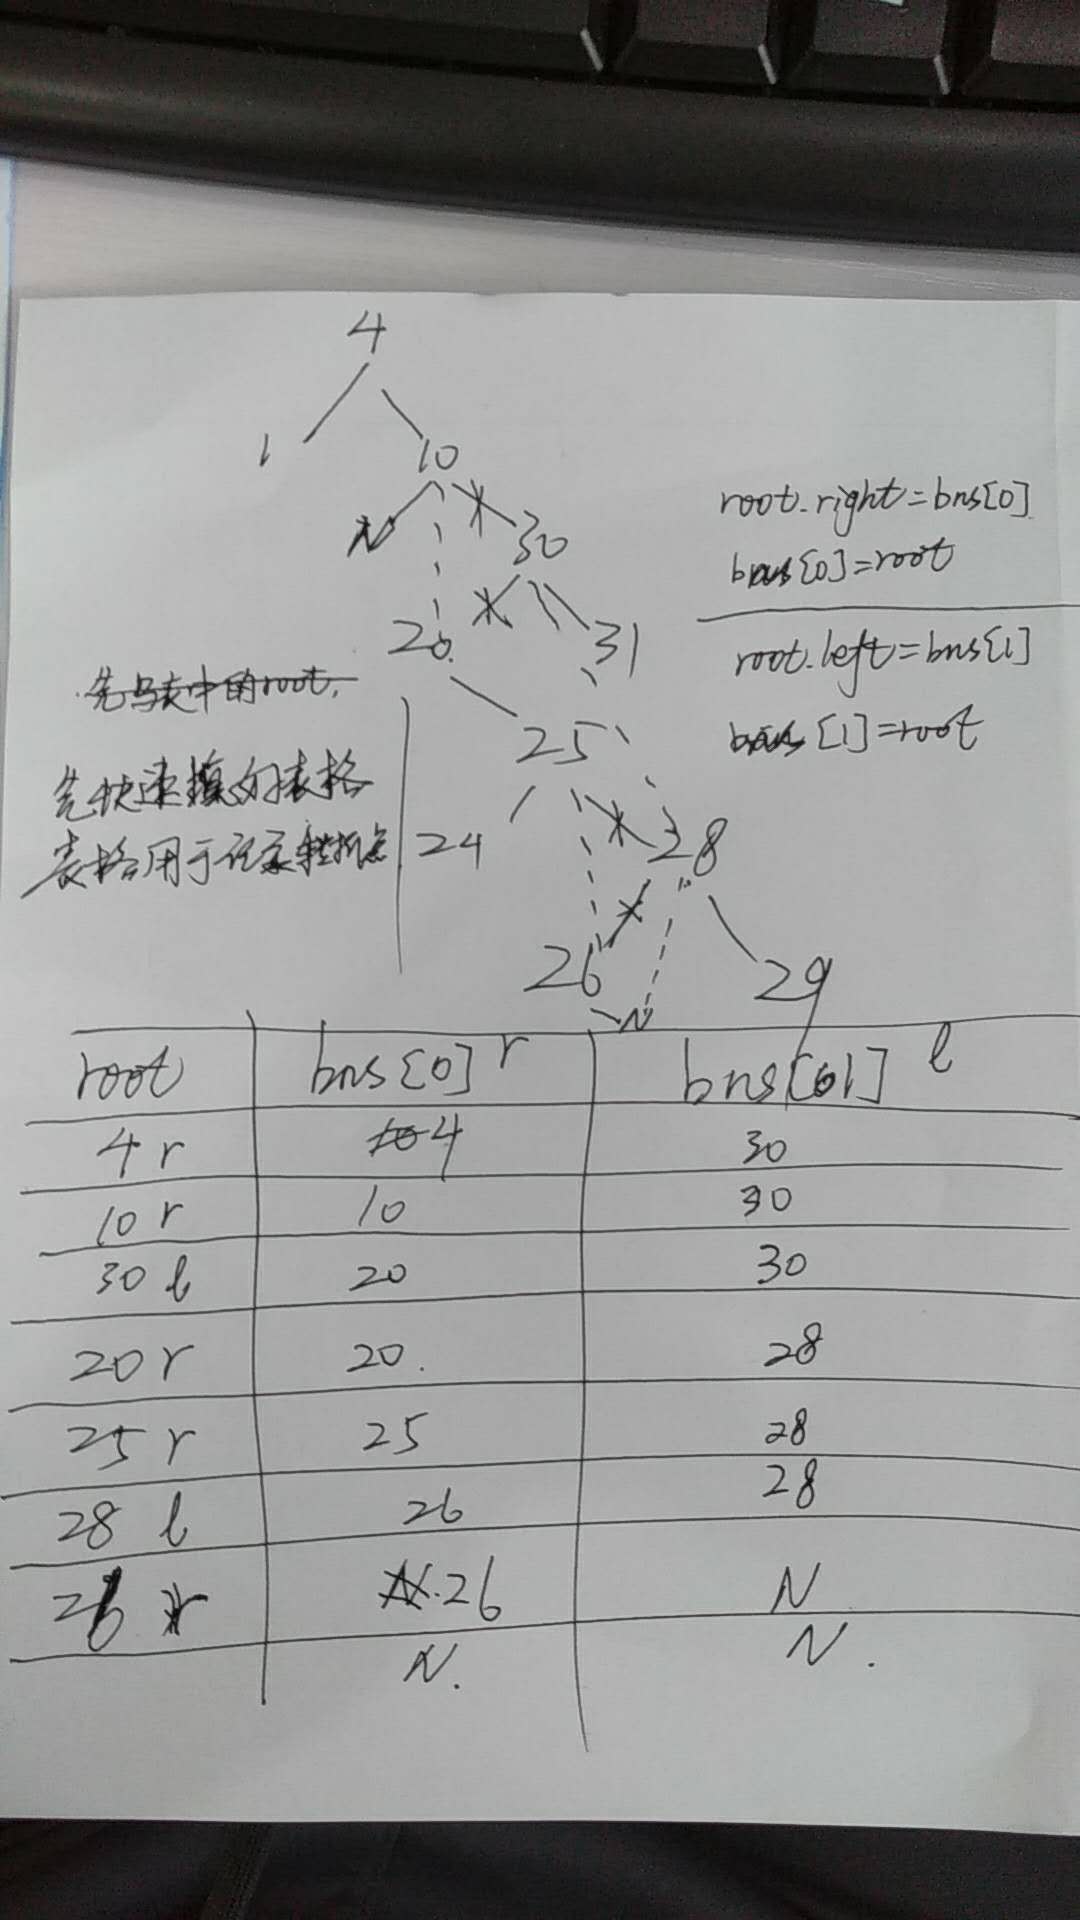 4
1 10
N 30
20 31
25
24 28
26 29
N
root.right=bns[0]
bns[0]=root
root.left=bns[1]
bns[1]=root
先写表中的root,
先快速填好表格
表格用于记录
root bns[0] r bns[1] l
4 r 4 30
10 r 10 30
30 l 20 30
20 r 20. 28
25 r 25 28
28 l 26 28
26 r 26 N
N. N.